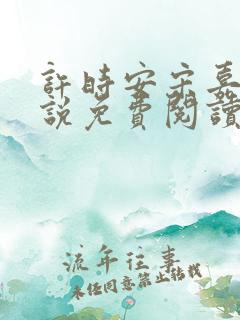 許時安宋嘉
說免費閱讀
流年往事
未经同意禁止结转